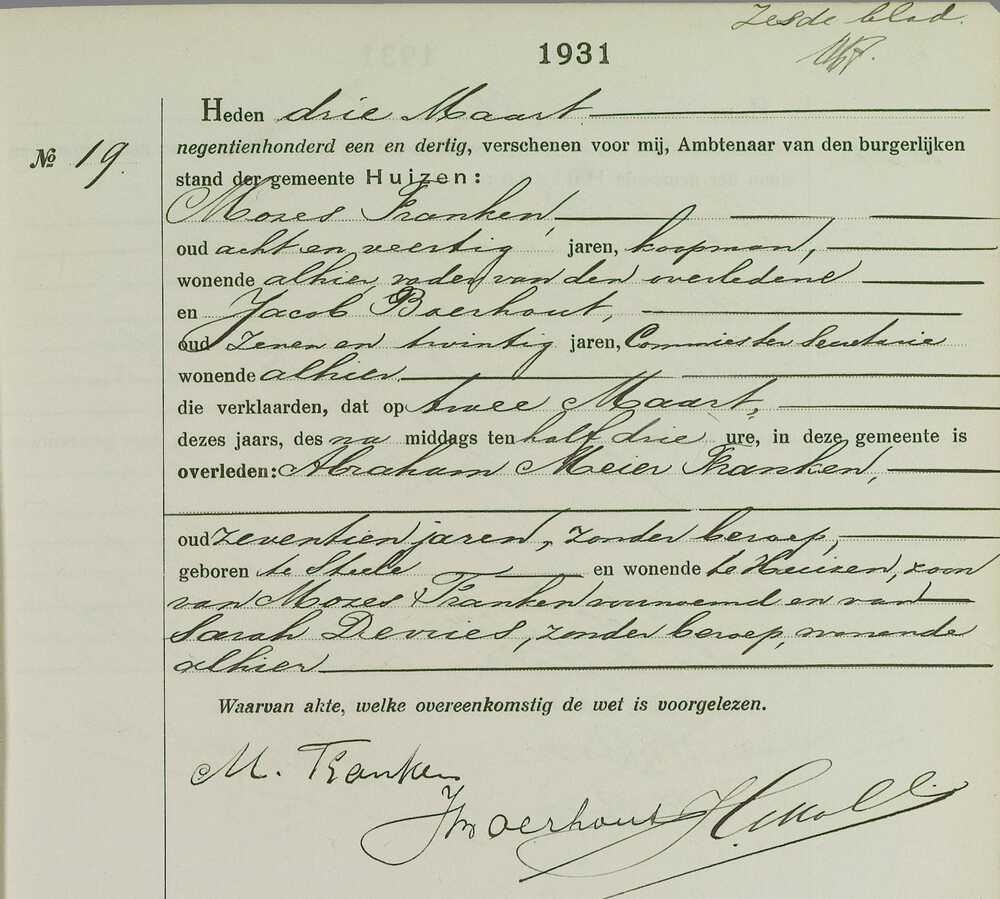 Zesde blad.
1931
Heden drie Maart
№ 19.
negentienhonderd een en dertig, verschenen voor mij, Ambtenaar van den burgerlijken
stand der gemeente Huizen:
Mozes Franken,
oud acht en veertig jaren, koopman,
wonende alhier, vader van den overledene
en Jacob Boerhout,
oud zeven en twintig jaren, Commies ter Secretarie
wonende alhier
die verklaarden, dat op twee Maart,
dezes jaars, des na middags ten half drie ure, in deze gemeente is
overleden: Abraham Meier Franken,
oud zeventien jaren, zonder beroep,
geboren te Steele en wonende te Huizen, zoon
van Mozes Franken voornoemd en van
Sarah Devries, zonder beroep, wonende
alhier
Waarvan akte, welke overeenkomstig de wet is voorgelezen.
M. Franken
JBoerhout